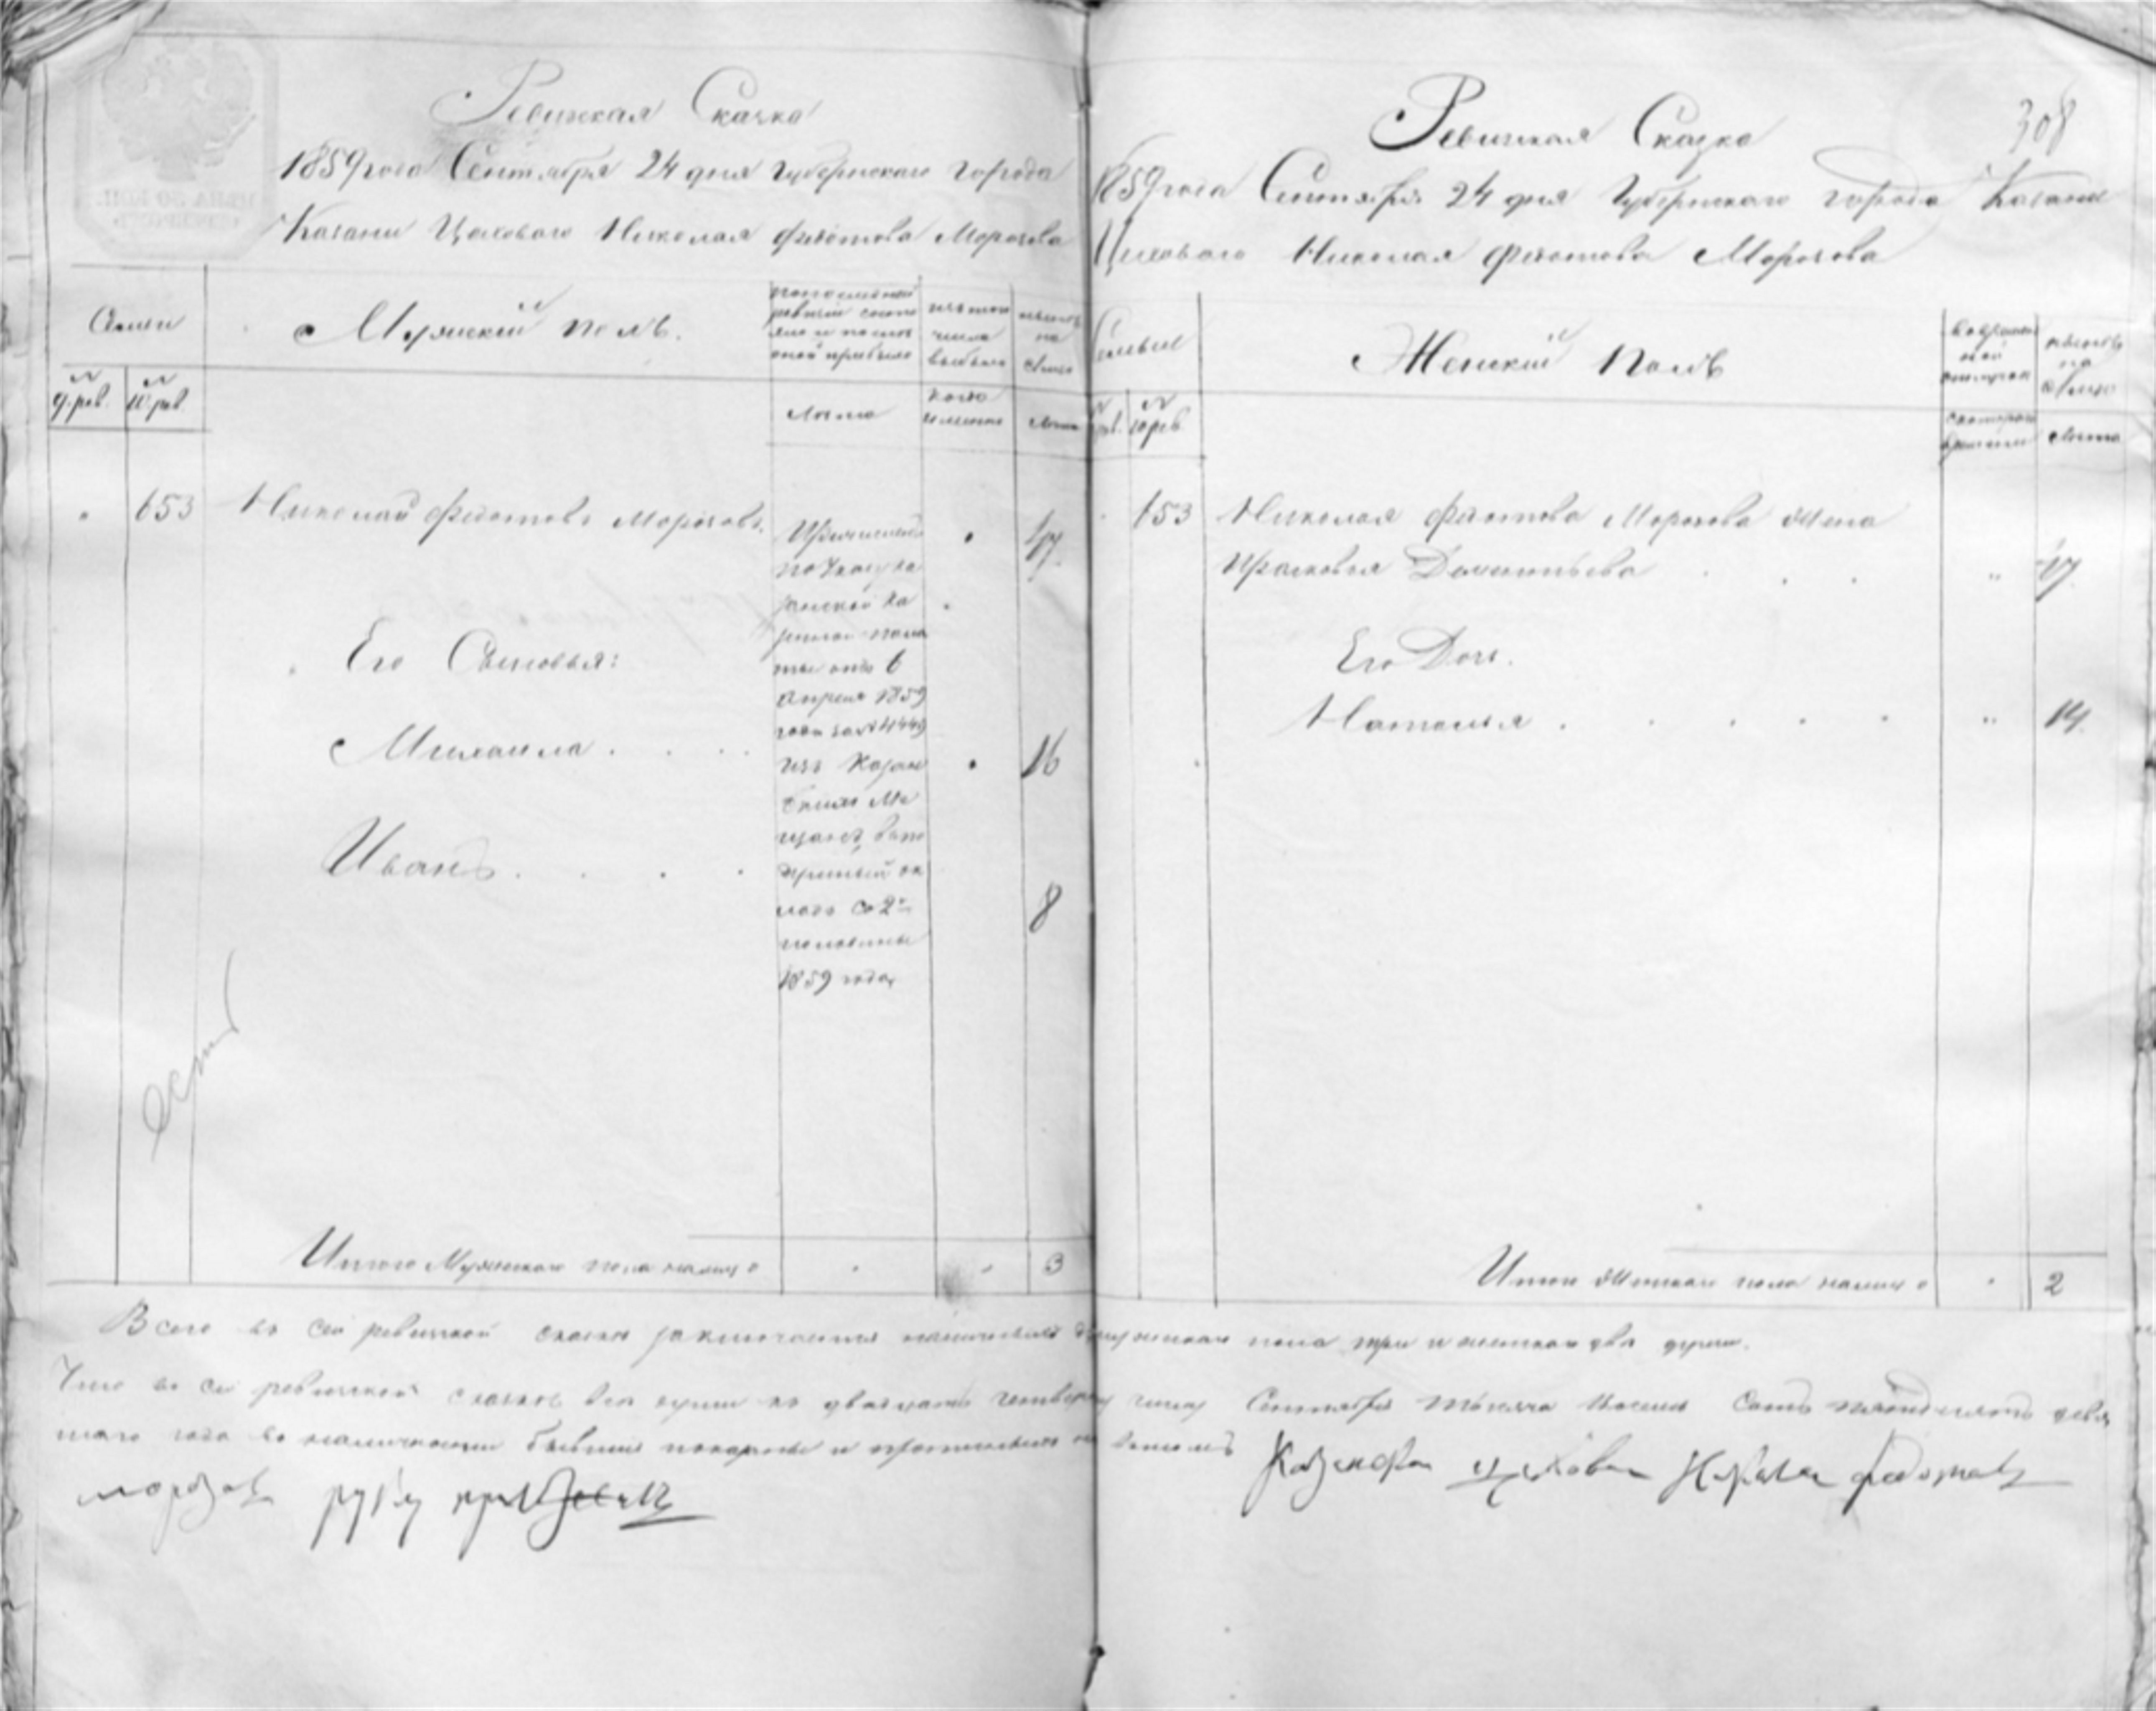 Ревизская Сказка
1859 года Сентября 24 дня Губернского города
Казани Цеховаго Николая Федотова Морозова
Семьи
Мужескій полъ.
№ 9. рев.
№ 10 рев.
Лета
Лета
653 Николай Федотовъ Морозовъ.
Причислен
по Указу Ка
занской Ка
зенной пала
ты отъ 6
Апреля 1859
года за № 4449
изъ Казан
скихъ Ме
щанъ
окладъ со 2й
половины
1859 года
47
Его Сыновья:
Михаила 16
Иванъ 8
Итого Мужеского пола налицо 3
308
Ревизская Сказка
1859 года Сентября 24 дня Губернского города Казани
Цеховаго Николая Федотова Морозова
Семьи
Женскій полъ
№ 10 рев
Лета
653 Николая Федотова Морозова жена
Прасковья Дементьева 47
Его Дочь.
Наталья 14
Итого женскаго пола налицо 2
Всего въ сей ревизской сказке заключается наличныхъ мужескаго пола три и женскаго две души.
Что въ сей ревизской сказке все души къ двадцать четвертому числу Сентября тысяча восемь сотъ пятьдесятъ девя
таго года въ наличности бывшие показаны и прописныхъ
Казанской цеховой Николай Федотовъ
морозовъ руку приложилъ